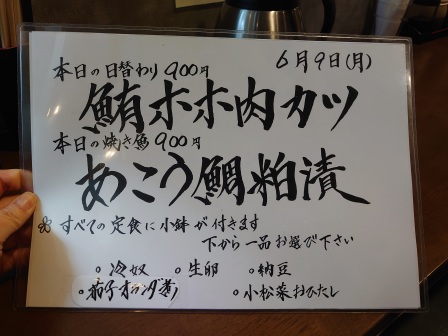 6月9日(月)
本日の日替わり900円
鮪ホホ肉カツ
本日の焼き魚900円
あこう鯛粕漬
すべての定食に小鉢が付きます
下から一品お選び下さい
・冷奴 ・生卵 ・納豆
・茄子オランダ煮 ・小松菜おひたし